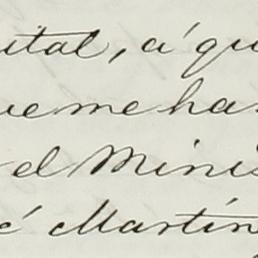 ital, á qu
ue me ha
el Minis
é Martín